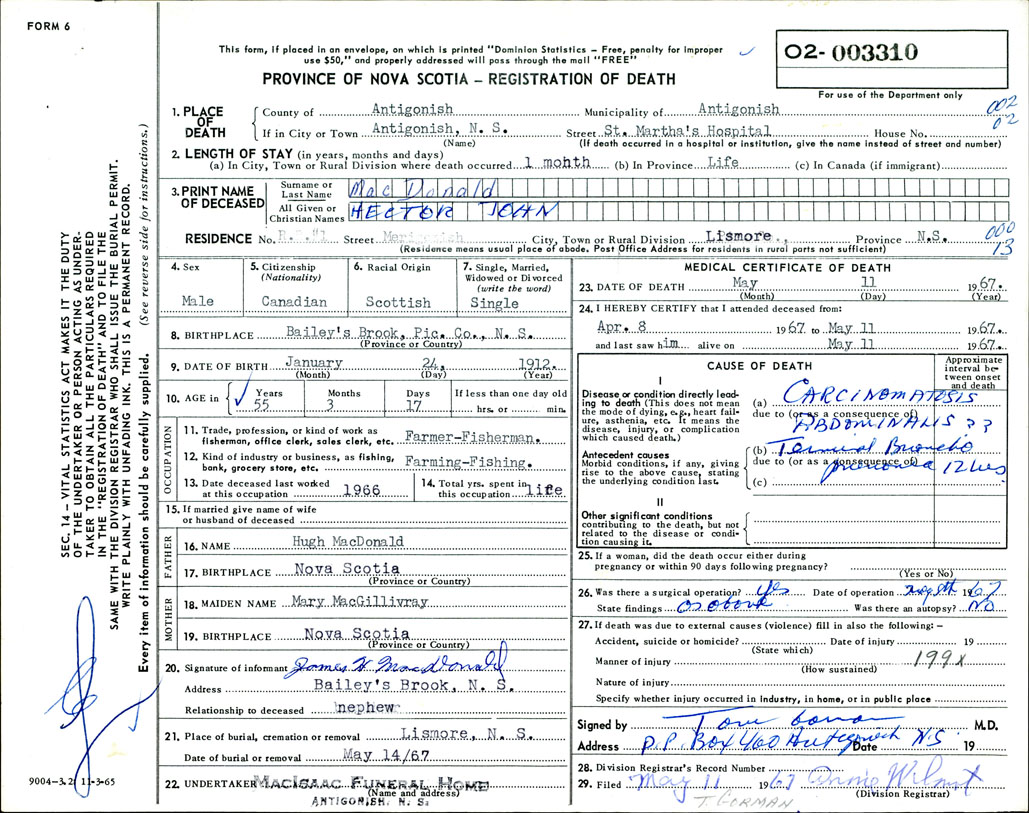 FORM 6
This form, if placed in an envelope, on which is printed "Dominion Statistics – Free, penalty for improper
use $50," and properly addressed will pass through the mail "FREE"
O2- 003310
For use of the Department only
PROVINCE OF NOVA SCOTIA – REGISTRATION OF DEATH
002
02
1. PLACE OF DEATH
County of Antigonish Municipality of Antigonish
If in City or Town Antigonish, N. S. Street St. Martha's Hospital House No.
(Name) (If death occurred in a hospital or institution, give the name instead of street and number)
2. LENGTH OF STAY (in years, months and days)
(a) In City, Town or Rural Division where death occurred 1 mohth (b) In Province Life (c) In Canada (if immigrant)
3. PRINT NAME OF DECEASED
Surname or Last Name MacDonald
All Given or Christian Names HECTOR JOHN
RESIDENCE No. R.R.#1 Street City, Town or Rural Division Lismore., Province N.S.
(Residence means usual place of abode. Post Office Address for residents in rural parts not sufficient)
000
13
4. Sex
Male
5. Citizenship (Nationality)
Canadian
6. Racial Origin
Scottish
7. Single, Married, Widowed or Divorced (write the word)
Single
8. BIRTHPLACE Bailey's Brook, Pic. Co., N. S.
(Province or Country)
9. DATE OF BIRTH January 24, 1912.
(Month) (Day) (Year)
10. AGE in Years Months Days If less than one day old
55 3 17 hrs. or min.
OCCUPATION
11. Trade, profession, or kind of work as
fisherman, office clerk, sales clerk, etc. Farmer-Fisherman.
12. Kind of industry or business, as fishing,
bank, grocery store, etc. Farming-Fishing.
13. Date deceased last worked
at this occupation 1966
14. Total yrs. spent in
this occupation life
15. If married give name of wife
or husband of deceased
FATHER
16. NAME Hugh MacDonald
17. BIRTHPLACE Nova Scotia
(Province or Country)
MOTHER
18. MAIDEN NAME Mary MacGillivray
19. BIRTHPLACE Nova Scotia
(Province or Country)
20. Signature of informant James H MacDonald
Address Bailey's Brook, N. S.
Relationship to deceased nephew
21. Place of burial, cremation or removal Lismore, N. S.
Date of burial or removal May 14/67
22. UNDERTAKER MacIsaac Funeral Home
(Name and address)
ANTIGONISH. N. S.
MEDICAL CERTIFICATE OF DEATH
23. DATE OF DEATH May 11 1967.
(Month) (Day) (Year)
24. I HEREBY CERTIFY that I attended deceased from:
Apr. 8 1967 to May 11 1967.
and last saw him alive on May 11 1967.
CAUSE OF DEATH
Approximate interval between onset and death
I
Disease or condition directly leading to death (This does not mean the mode of dying, e.g., heart failure, asthenia, etc. It means the disease, injury, or complication which caused death.)
(a) CARCINOMATOSIS
due to (or as a consequence of)
ABDOMINALIS ??
Antecedent causes
Morbid conditions, if any, giving rise to the above cause, stating the underlying condition last.
(b) Terminal Broncho
due to (or as a consequence of)
pneumonia 12 hrs
(c)
II
Other significant conditions
contributing to the death, but not related to the disease or condition causing it.
25. If a woman, did the death occur either during
pregnancy or within 90 days following pregnancy?
(Yes or No)
26. Was there a surgical operation? Yes Date of operation 1967
State findings as above Was there an autopsy? No
27. If death was due to external causes (violence) fill in also the following: –
Accident, suicide or homicide? Date of injury 19
(State which)
Manner of injury 199X
(How sustained)
Nature of injury
Specify whether injury occurred in industry, in home, or in public place
Signed by M.D.
Address P.O. Box 460 Antigonish N.S. Date 19
28. Division Registrar's Record Number
29. Filed May 11 1967
(Division Registrar)
T. GORMAN
SEC. 14 – VITAL STATISTICS ACT MAKES IT THE DUTY
OF THE UNDERTAKER OR PERSON ACTING AS UNDER-
TAKER TO OBTAIN ALL THE PARTICULARS REQUIRED
IN THE "REGISTRATION OF DEATH" AND TO FILE THE
SAME WITH THE DIVISION REGISTRAR WHO SHALL ISSUE THE BURIAL PERMIT.
WRITE PLAINLY WITH UNFADING INK. THIS IS A PERMANENT RECORD.
Every item of information should be carefully supplied. (See reverse side for instructions.)
9004-3.2 11-3-65